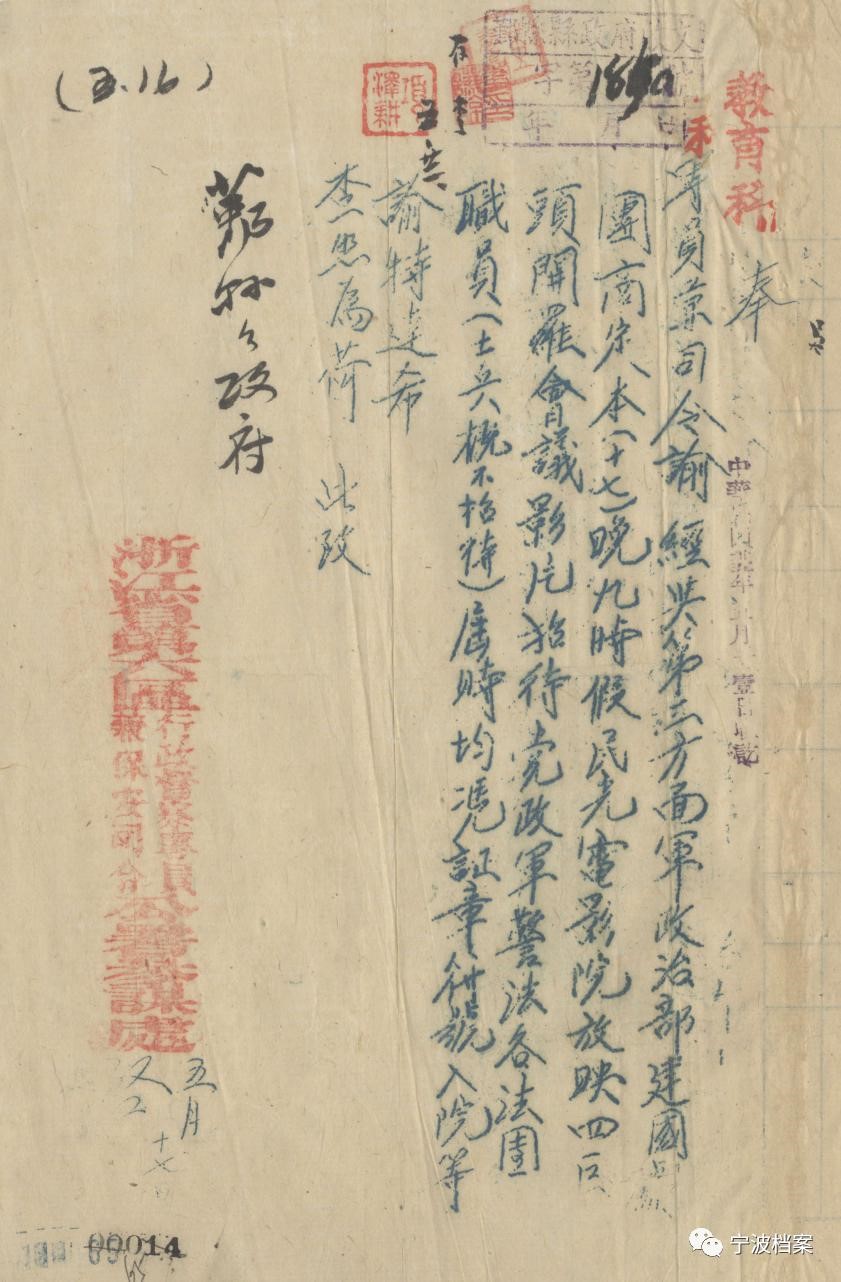 教育科
鄞縣縣政府收文
字第 號
年 月 日
奉
專員兼司令諭經與第三方面軍政治部建國
團商定本(十七)晚九時假民光電影院放映四巨
頭開羅會議影片招待党政軍警法各法團
職員(士兵概不招待)屆時均憑証章符號入院等
諭特達希
查照為荷 此致
鄞縣縣政府
浙江省第六區行政督察專員兼保安司令公署參謀處
五月
十七日
00014
宁波档案